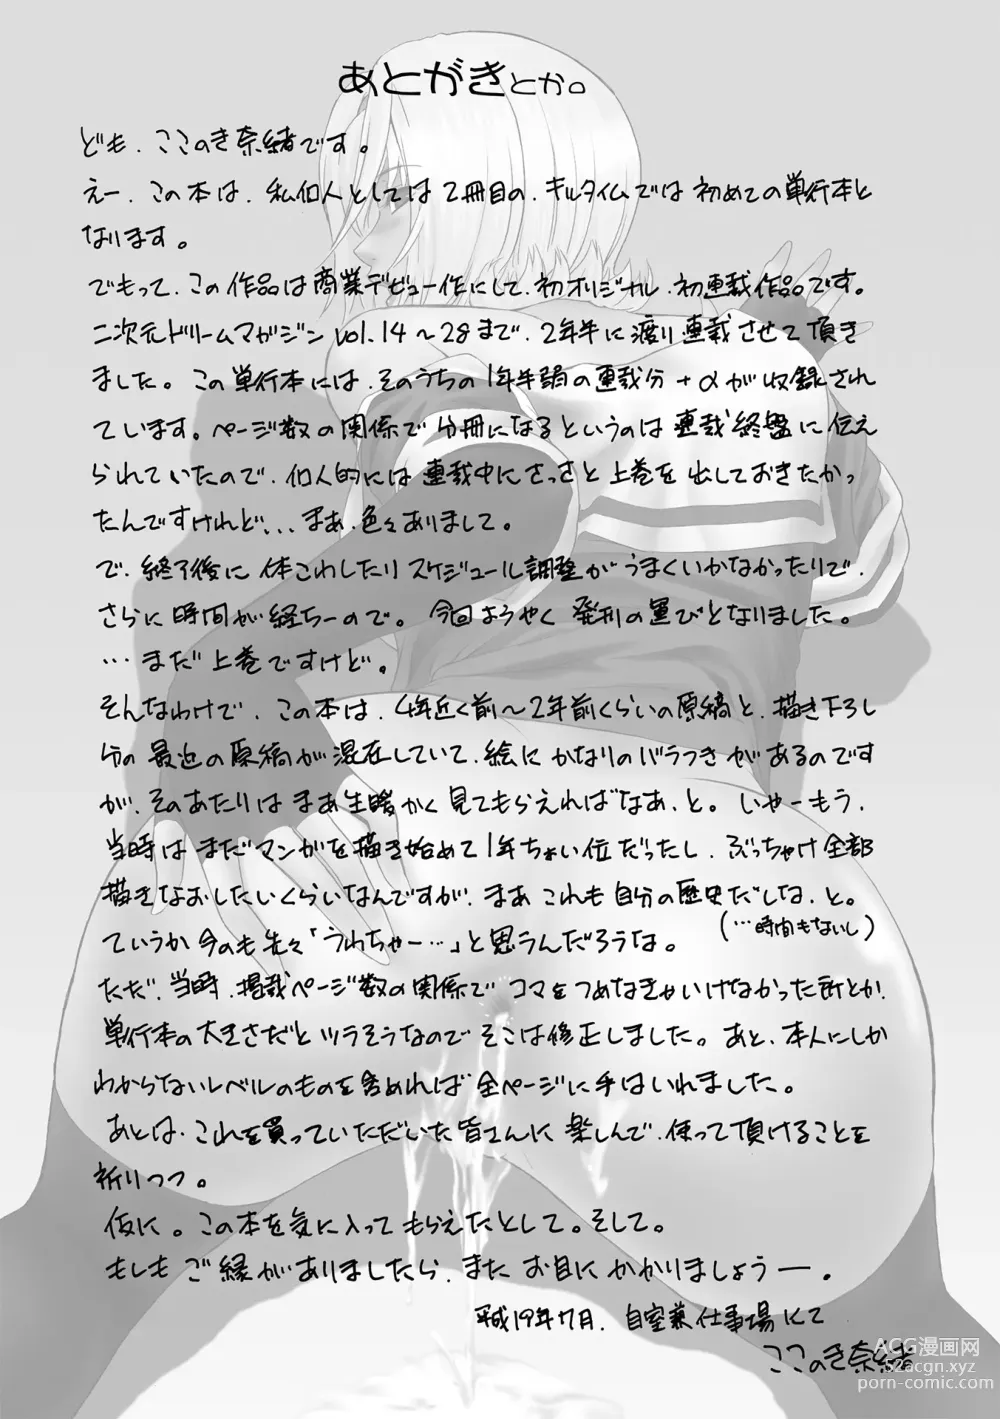 あとがきとか。
ども、ここのき奈緒です。
えー、この本は、私個人としては2冊目の、キルタイムでは初めての単行本と
なります。
でもって、この作品は商業デビュー作にして、初オリジナル、初連載作品です。
二次元ドリームマガジン vol.14〜28まで、2年半に渡り連載させて頂き
ました。この単行本には、そのうちの1年半弱の連載分+αが収録され
ています。ページ数の関係で分冊になるというのは連載終盤に伝え
られていたので、個人的には連載中にさっさと上巻を出しておきたかっ
たんですけれど、、、まあ、色々ありまして。
で、終了後に体こわしたりスケジュール調整がうまくいかなかったりで、
さらに時間が経ちーので。今回ようやく発刊の運びとなりました。
…まだ上巻ですけど。
そんなわけで、この本は、4年近く前〜2年前くらいの原稿と、描き下ろし
分の最近の原稿が混在していて、絵にかなりのバラつきがあるのです
が、そのあたりはまあ生暖かく見てもらえればなあ、と。いやーもう、
当時はまだマンガを描き始めて1年ちょい位だったし、ぶっちゃけ全部
描きなおしたいくらいなんですが、まあこれも自分の歴史だしな、と。
(…時間もないし)
ていうか今のも先々「うわちゃー…」と思うんだろうな。
ただ、当時、掲載ページ数の関係でコマをつめなきゃいけなかった所とか、
単行本の大きさだとツラそうなのでそこは修正しました。あと、本人にしか
わからないレベルのものを含めれば全ページに手はいれました。
あとは、これを買っていただいた皆さんに楽しんで、使って頂けることを
祈りつつ。
仮に。この本を気に入ってもらえたとして。そして。
もしもご縁がありましたら、またお目にかかりましょうー。
平成19年7月、自室兼仕事場にて
ここのき奈緒
ACG漫画网
52acgn.xyz
porn-comic.com